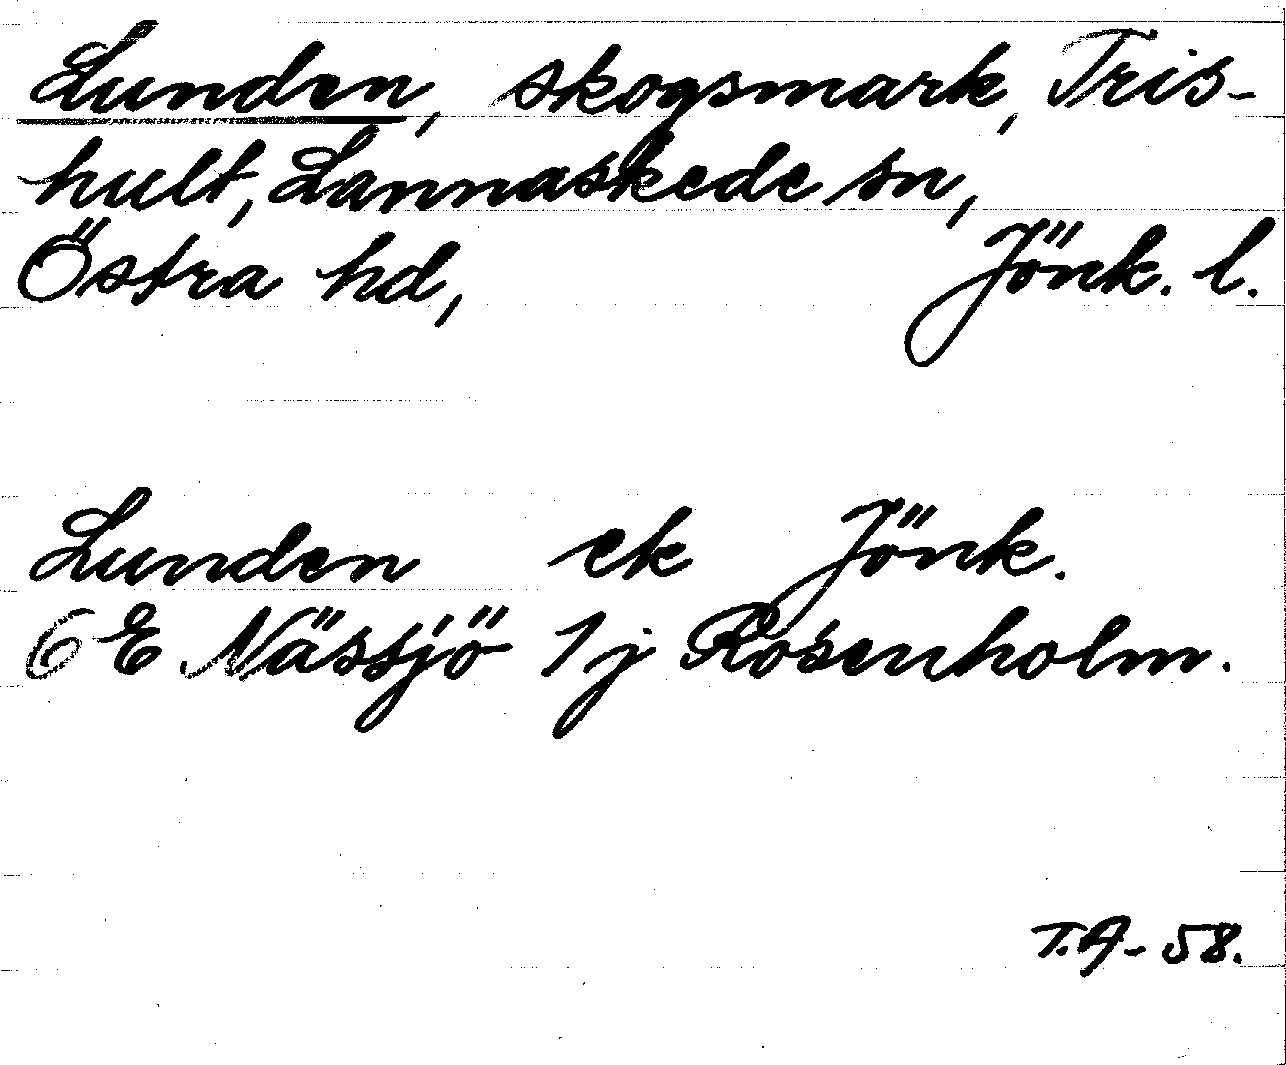 Lunden, skogsmark, Tris-
hult, Lannaskede sn,
Östra hd, Jönk. l.
Lunden ek Jönk.
6 E Nässjö 1 j Rosenholm.
T.A- 58.